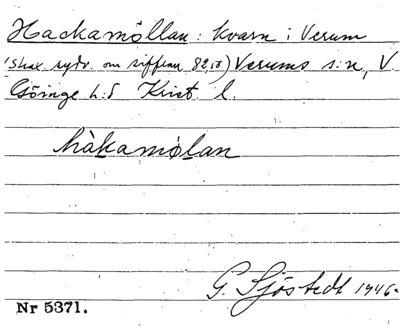 Hackamöllan: kvarn i Verum
(strax sydv. om siffran 82,58) Verums s:n, V.
Göinge h:d Krist. l.
hàkamølan
G. Sjöstedt 1946.
Nr 5371.